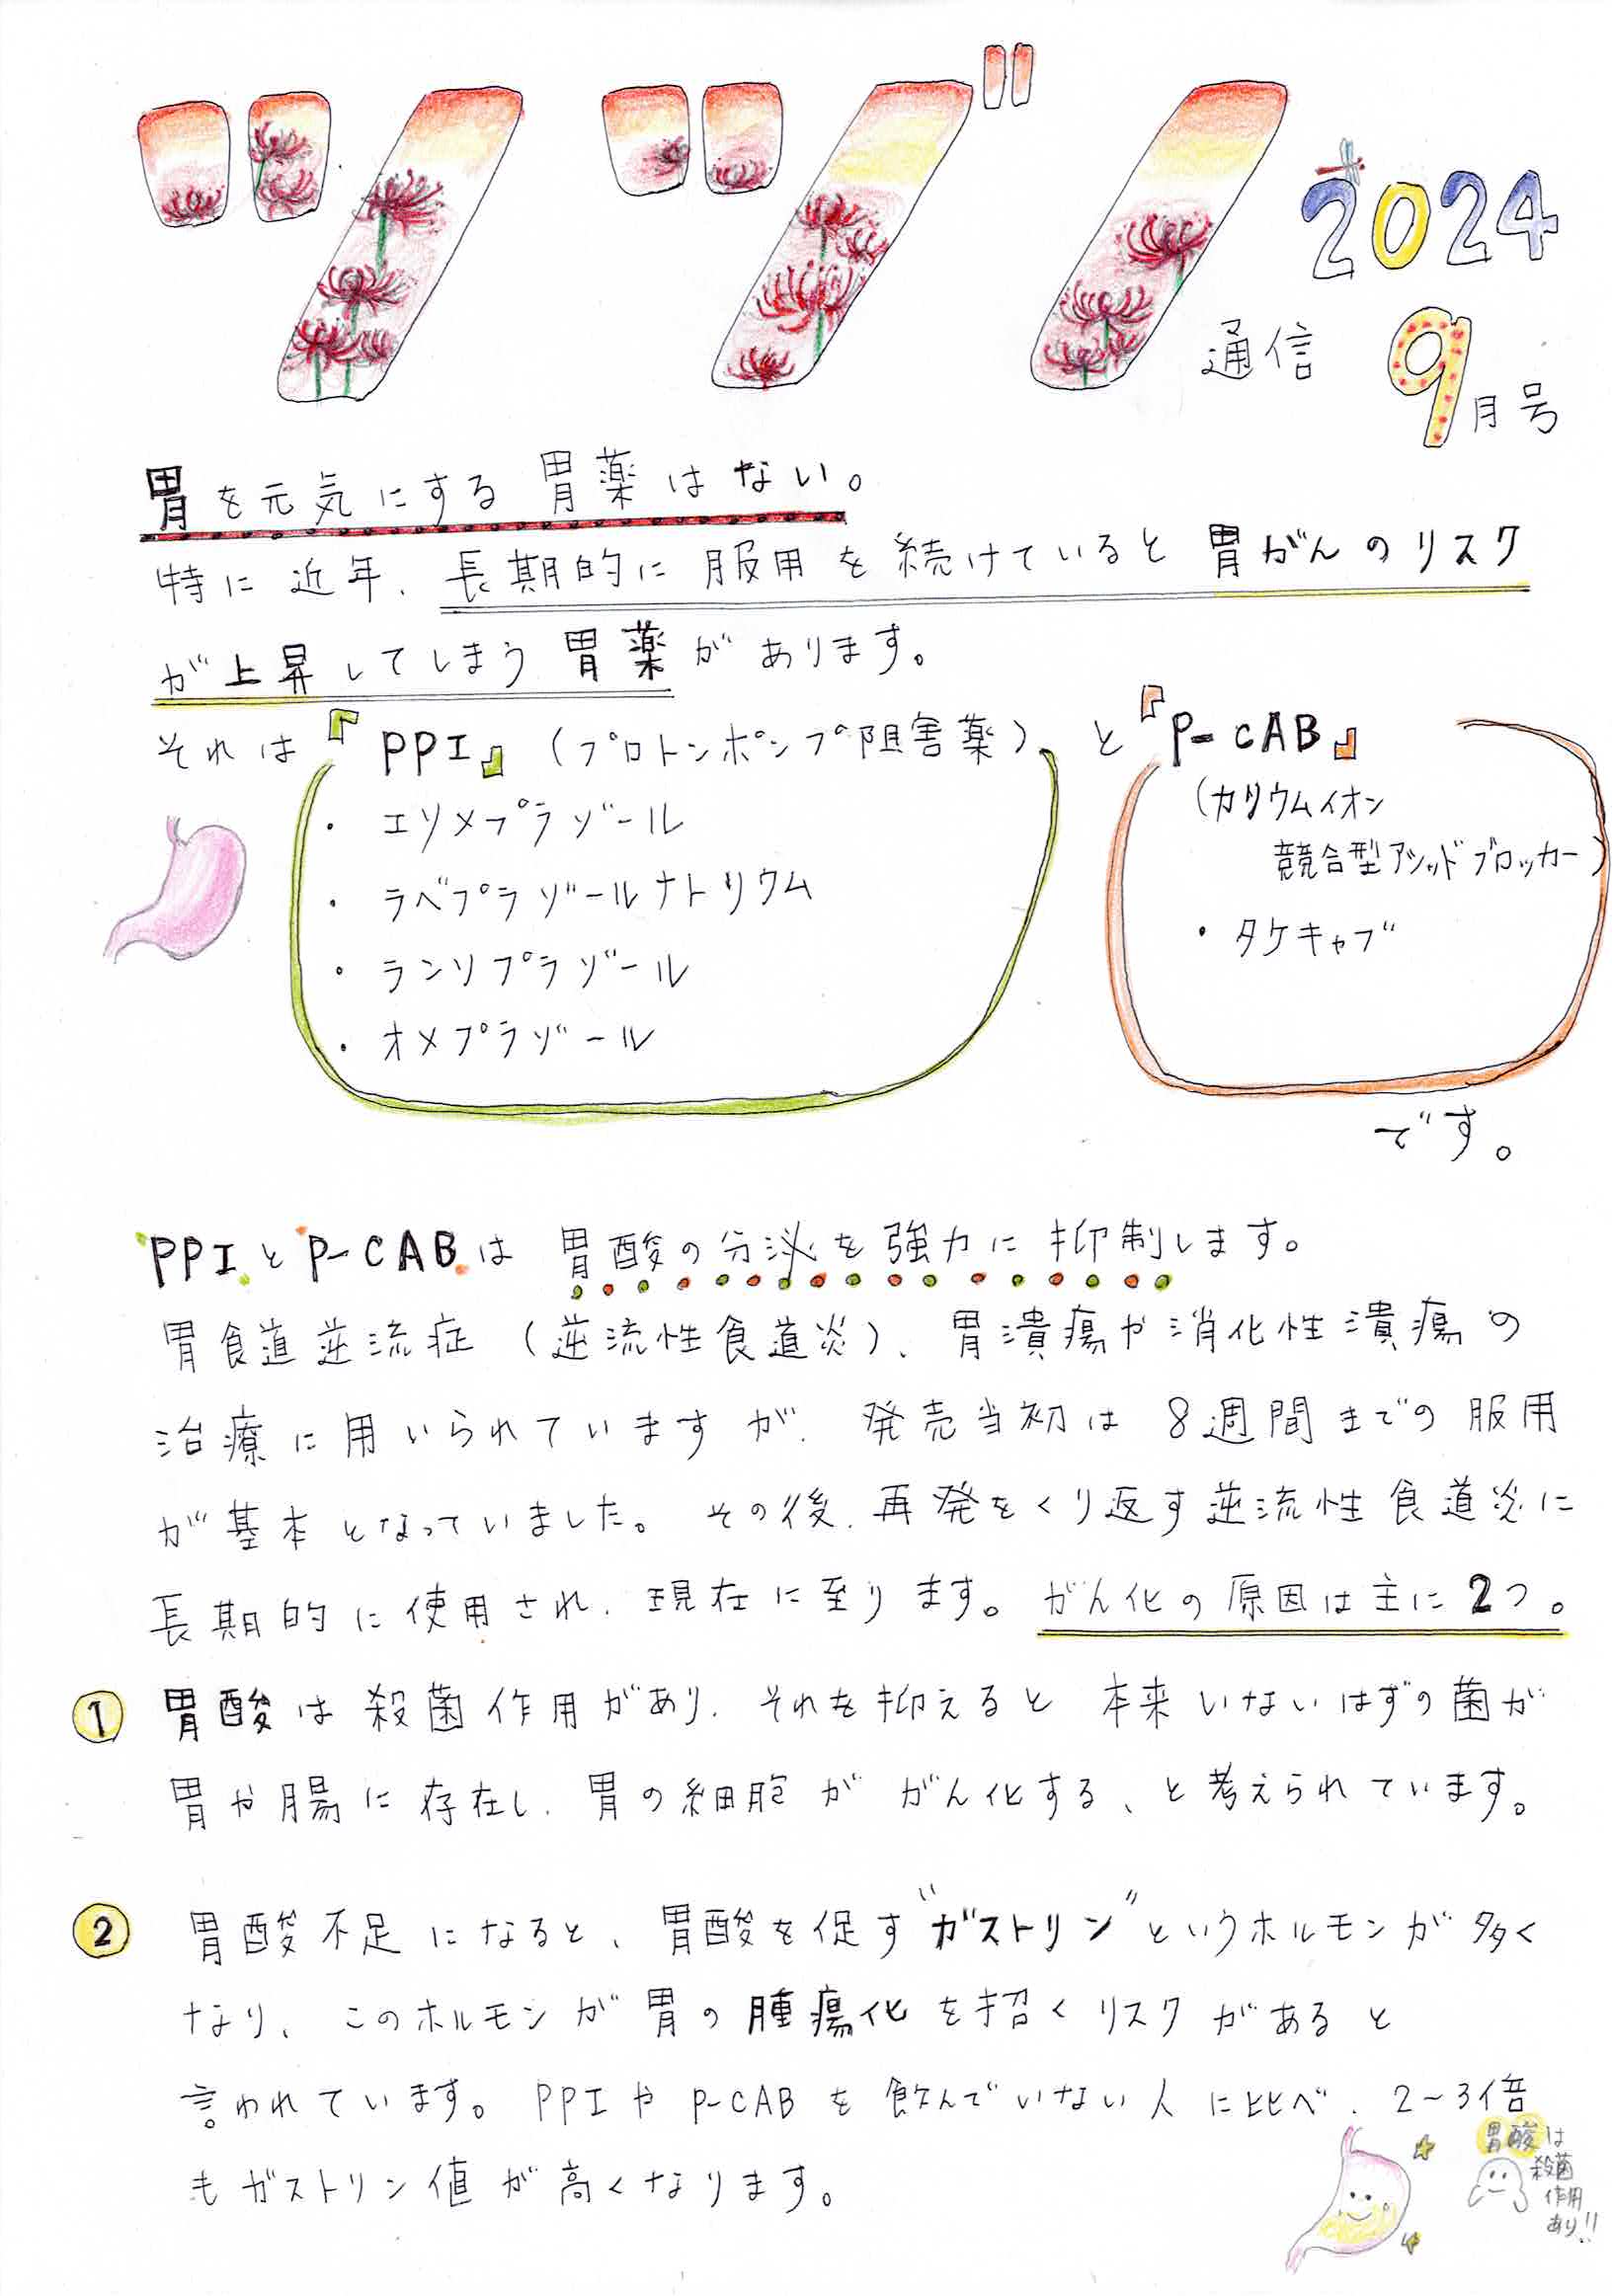 ツヅノ 2024
通信 9月号
胃を元気にする胃薬はない。
特に近年、長期的に服用を続けていると胃がんのリスク
が上昇してしまう胃薬があります。
それは『PPI』(プロトンポンプ阻害薬)と『P-CAB』
(カリウムイオン
競合型アシッドブロッカー)
・エソメプラゾール
・ラベプラゾールナトリウム
・ランソプラゾール
・オメプラゾール
・タケキャブ
です。
PPIとP-CABは胃酸の分泌を強力に抑制します。
胃食道逆流症(逆流性食道炎)、胃潰瘍や消化性潰瘍の
治療に用いられていますが、発売当初は8週間までの服用
が基本となっていました。その後、再発をくり返す逆流性食道炎に
長期的に使用され、現在に至ります。がん化の原因は主に2つ。
① 胃酸は殺菌作用があり、それを抑えると本来いないはずの菌が
胃や腸に存在し、胃の細胞ががん化する、と考えられています。
② 胃酸不足になると、胃酸を促す“ガストリン”というホルモンが多く
なり、このホルモンが胃の腫瘍化を招くリスクがあると
言われています。PPIやP-CABを飲んでいない人に比べ、2~3倍
もガストリン値が高くなります。
胃酸は
殺菌
作用
あり!!